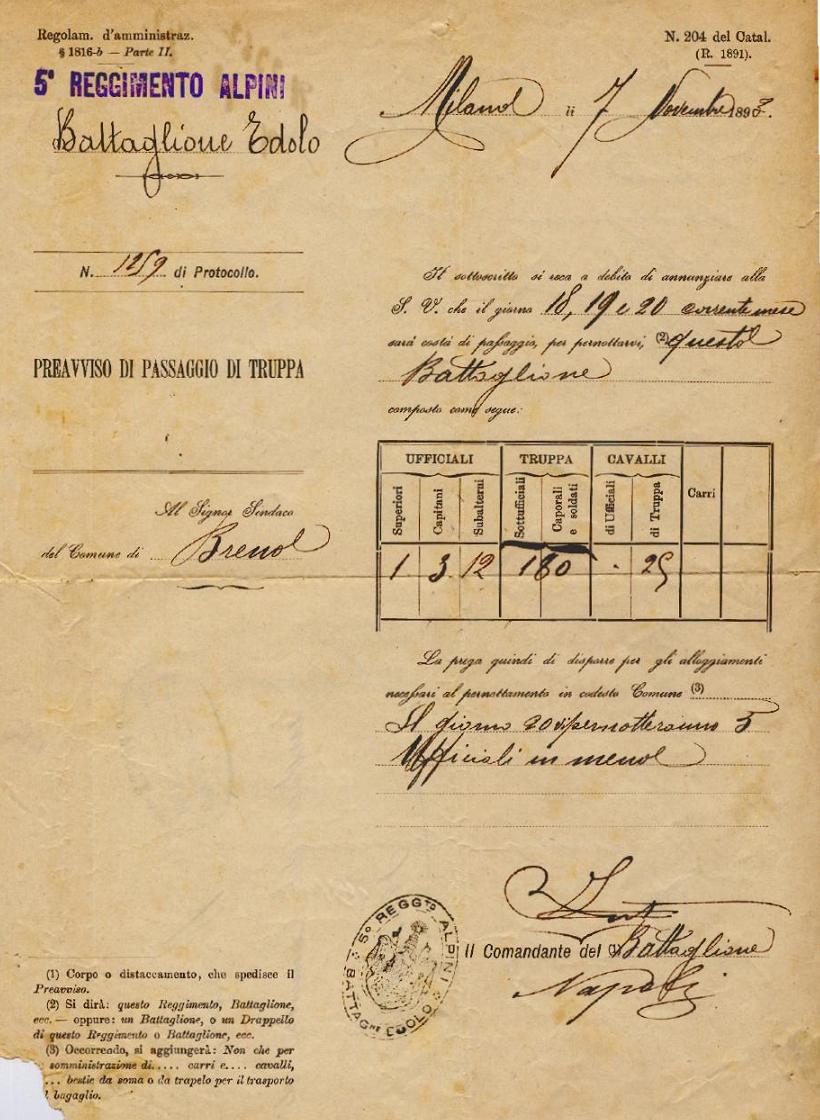 Regolam. d'amministraz.
§ 1816-b — Parte II.
N. 204 del Catal.
(R. 1891).
5° REGGIMENTO ALPINI
Battaglione Edolo
Milano li 7 Novembre 189
N. 1259 di Protocollo.
PREAVVISO DI PASSAGGIO DI TRUPPA
Al Signor Sindaco
del Comune di Breno
Il sottoscritto si reca a debito di annunziare alla
S. V. che il giorno 18, 19 e 20 corrente mese
sarà costà di passaggio, per pernottarvi, (2) questo
Battaglione
composto come segue:
UFFICIALI TRUPPA CAVALLI
Superiori Capitani Subalterni Sottufficiali Caporali e soldati di Ufficiali di Truppa Carri
1 3 12 160 - 25
La prega quindi di disporre per gli alloggiamenti
necessari al pernottamento in codesto Comune (3)
Il giorno 20 vi pernotteranno 5
Ufficiali in meno
Il Comandante del Battaglione
5° REGGTO ALPINI
BATTAGNE EDOLO
(1) Corpo o distaccamento, che spedisce il
Preavviso.
(2) Si dirà: questo Reggimento, Battaglione,
ecc. — oppure: un Battaglione, o un Drappello
di questo Reggimento o Battaglione, ecc.
(3) Occorrendo, si aggiungerà: Non che per
somministrazione di..... carri e.... cavalli,
.... bestie da soma o da trapelo per il trasporto
bagaglio.